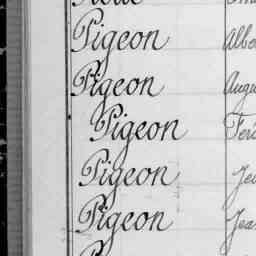 Pigeon Albe
Pigeon Augu
Pigeon Fer
Pigeon Je
Pigeon Jea